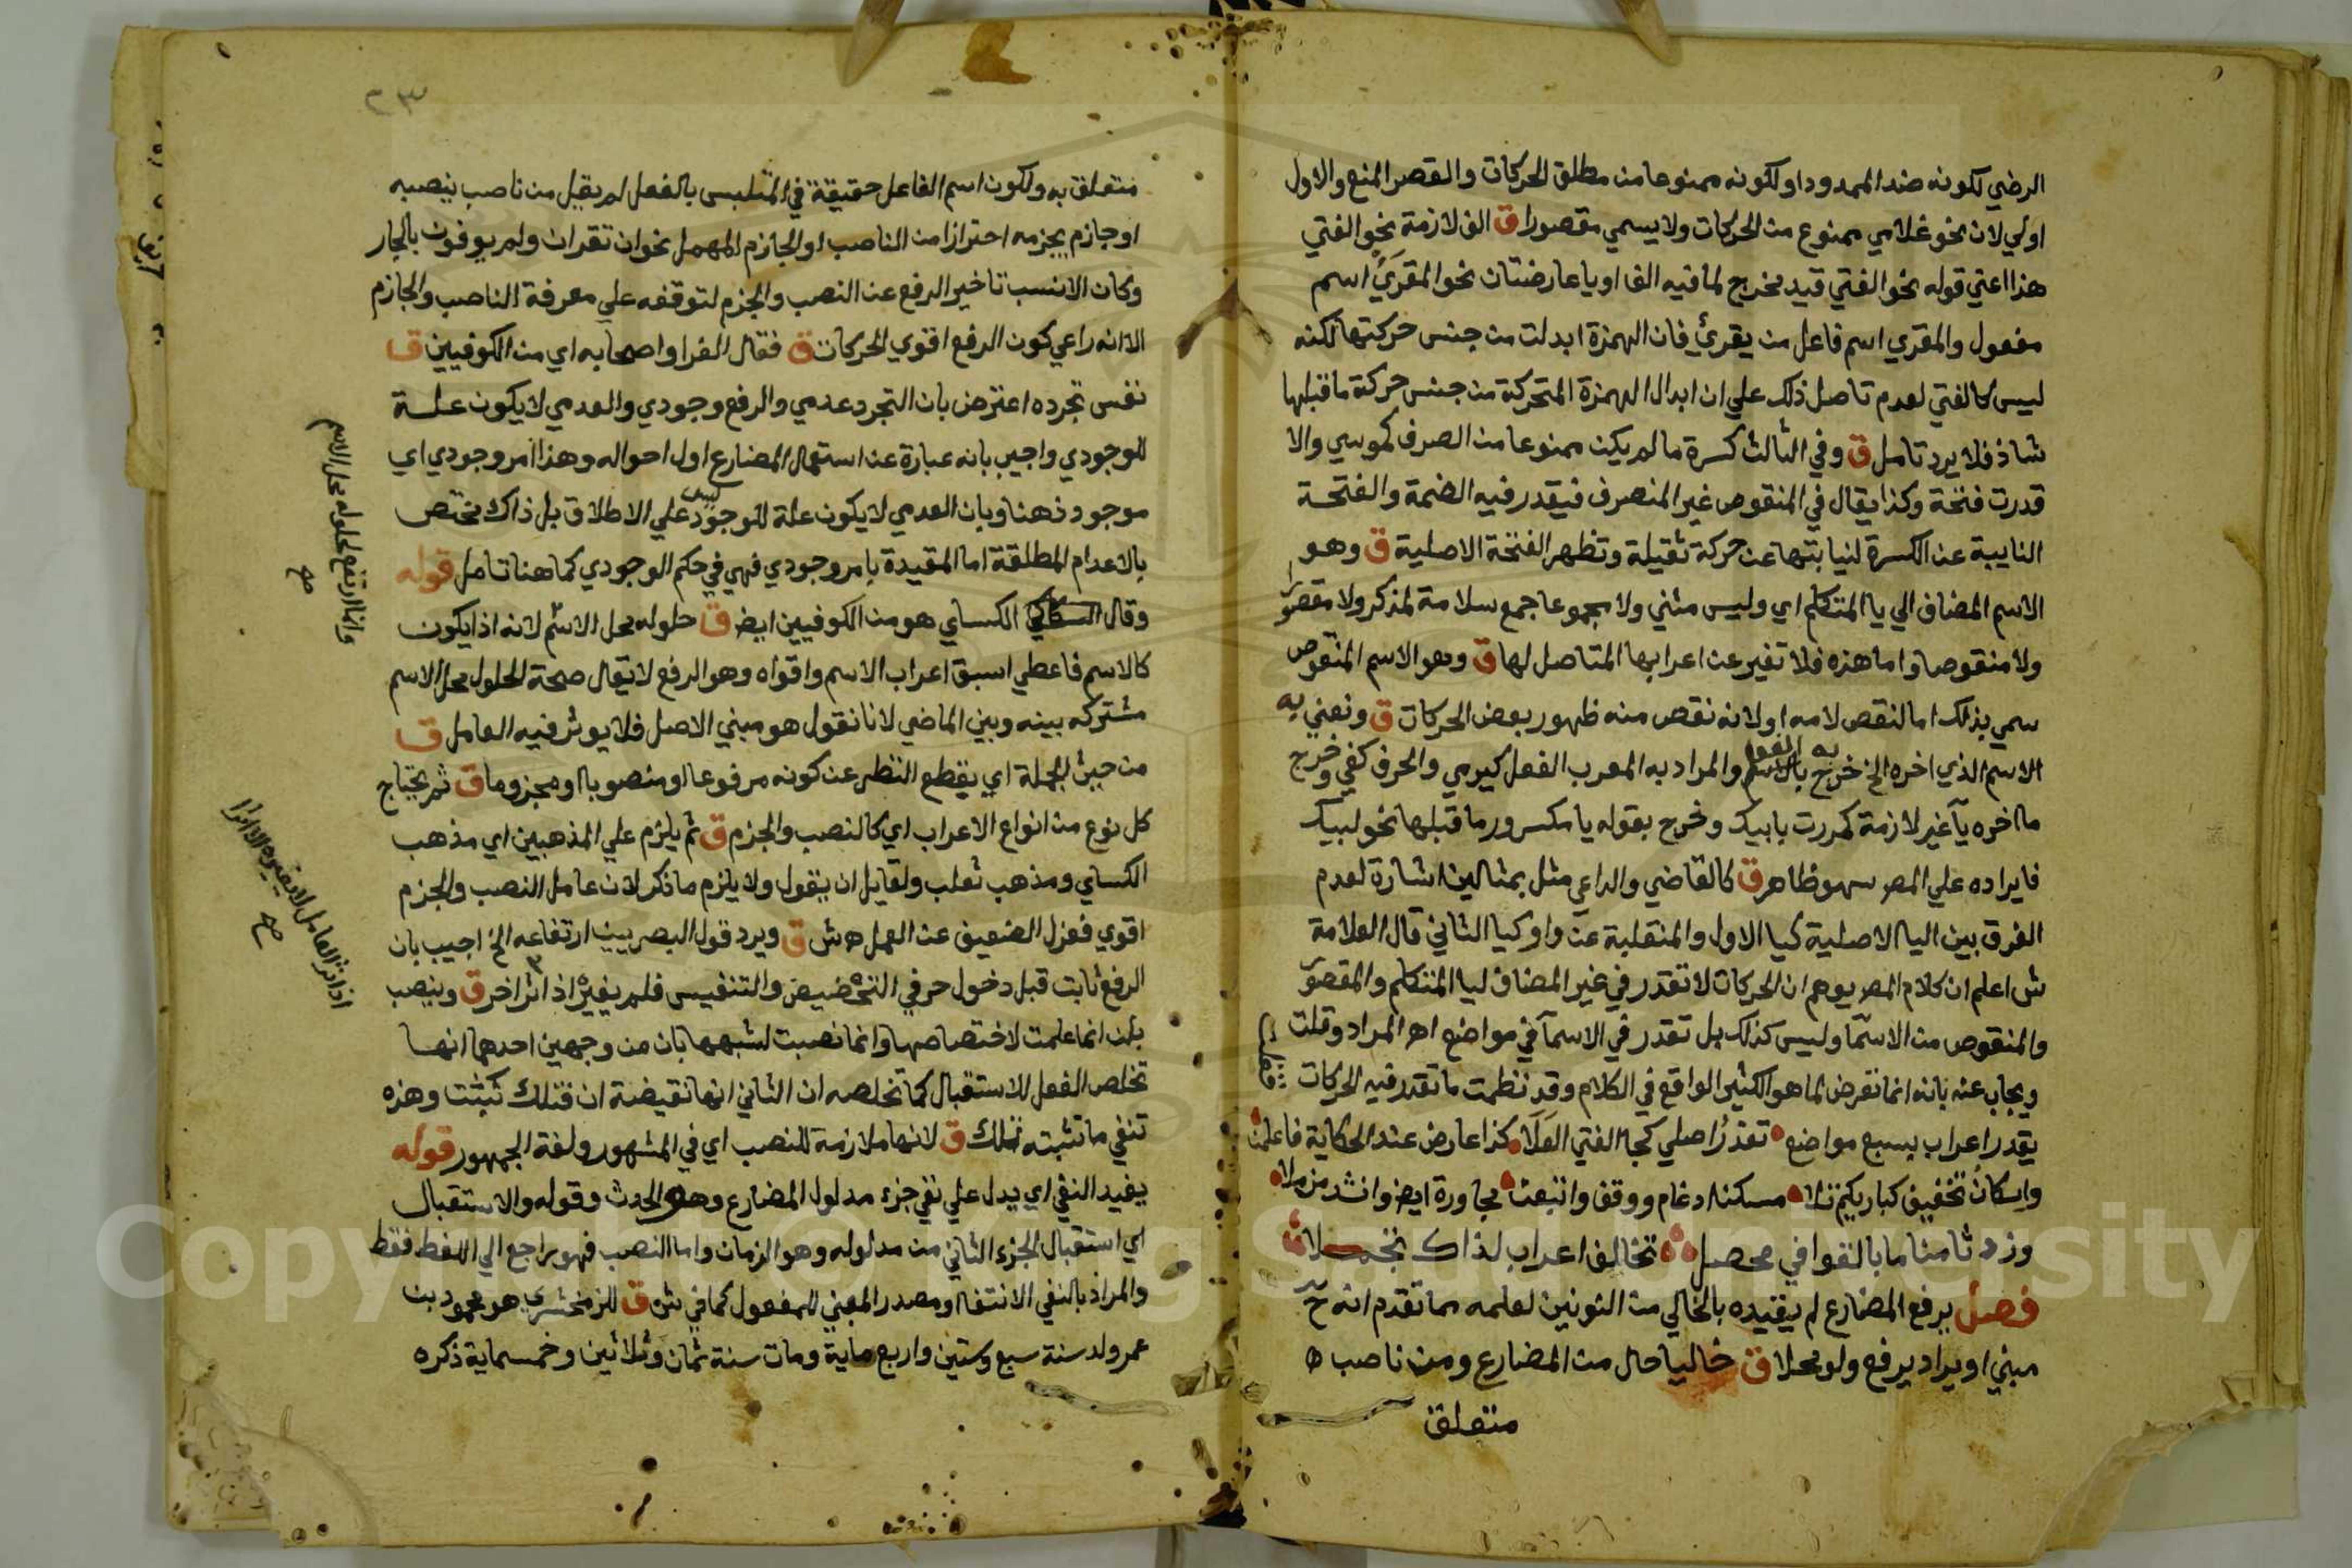 الرضي لكونه ضد الممدود او لكونه ممنوعا من مطلق الحركات والقصر المنع والاول
اولي لان نحو غلامي ممنوع من الحركات ولا يسمي مقصورا ق الف لازمة نحو الفتي
هذا اعني قوله نحو الفتي قيد مخرج لما فيه الف او يا عارضتان نحو المقري اسم
مفعول والمقري اسم فاعل من يقرئ فان الهمزة ابدلت من جنس حركتها لكنه
ليس كالفتي لعدم تاصل ذلك علي ان ابدال الهمزة المتحركة من جنس حركة ما قبلها
شاذ فلا يرد تامل ق وفي الثالث كسرة ما لم يكن ممنوعا من الصرف كموسي والا
قدرت فتحة وكذا يقال في المنقوص غير المنصرف فيقدر فيه الضمة والفتحة
النايبة عن الكسرة لنيابتها عن حركة ثقيلة وتظهر الفتحة الاصلية ق وهو
الاسم المضاف الي يا المتكلم اي وليس مثني ولا مجموعا جمع سلامة لمذكر ولا مقصورا
ولا منقوصا واما هذه فلا تغير عن اعرابها المتاصل لها ق وهو الاسم المنقوص
سمي بذلك اما لنقص لامه او لانه نقص منه ظهور بعض الحركات ق ونعني به
الاسم الذي اخره الخ خرج به الفعل بالاسم والمراد به المعرب الفعل كيرمي والحرف كفي وخرج
ما اخره يآ غير لازمة كمررت بابيك وخرج بقوله يا مكسور ما قبلها نحو لبيك
فايراده علي المص سهو ظاهر ق كالقاضي والداعي مثل بمثالين اشارة لعدم
الفرق بين اليا الاصلية كيا الاول والمنقلبة عن واو كيا الثاني قال العلامة
ش اعلم ان كلام المص يوهم ان الحركات لا تقدر في غير المضاف ليا المتكلم والمقصور
والمنقوص من الاسمآ وليس كذلك بل تقدر في الاسمآ في مواضع اهـ المراد وقلت
ويجاب عنه بانه انما تعرض لما هو الكثير الواقع في الكلام وقد نظمت ما تقدر فيه الحركات
يقدر اعراب بسبع مواضع تعذر اصلي كجا الفتي العلا كذا عارض عند الحكاية فاعلمن
واسكان تخفيف كباريكم تلا مسكنا ادغام ووقف واتبعن مجاورة ايض وانشد من ملا
وزد ثامنا ما بالقوافي محصل تخالف اعراب لذاك تجملا
فصل يرفع المضارع لم يقيده بالخالي من النونين لعلمه مما تقدم انه ح
مبني او يراد يرفع ولو محلا ق خاليا حال من المضارع ومن ناصب ه
متعلق
٢٣
متعلق به ولكون اسم الفاعل حقيقة في المتلبس بالفعل لم يقل من ناصب ينصبه
او جازم يجزمه احترازا من الناصب او الجازم المهمل نحو ان تقران ولم يوفون بالجار
وكان الانسب تاخير الرفع عن النصب والجزم لتوقفه علي معرفة الناصب والجازم
الا انه راعي كون الرفع اقوي الحركات ق فقال الفرا واصحابه اي من الكوفيين ق
نفس تجرده اعترض بان التجرد عدمي والرفع وجودي والعدمي لا يكون علة
للوجودي واجيب بانه عبارة عن استعمال المضارع اول احواله وهذا امر وجودي اي
موجود ذهنا وبان العدمي لا يكون علة للوجود ليس علي الاطلاق بل ذاك مختص
بالاعدام المطلقة اما المقيدة بامر وجودي فهي في حكم الوجودي كما هنا تامل قوله
وقال الكساي هو من الكوفيين ايض ق حلوله محل الاسم لانه اذا يكون
كالاسم فاعطي اسبق اعراب الاسم واقواه وهو الرفع لا يقال صحة الحلول محل الاسم
مشتركه بينه وبين الماضي لانا نقول هو مبني الاصل فلا يوثر فيه العامل ق
من حيث الجملة اي يقطع النظر عن كونه مرفوعا او منصوبا او مجزوما ق ثم يحتاج
كل نوع من انواع الاعراب اي كالنصب والجزم ق ثم يلزم علي المذهبين اي مذهب
الكساي ومذهب ثعلب ولقايل ان يقول ولا يلزم ما ذكر لان عامل النصب والجزم
اقوي فعزل الضعيف عن العمل ه ش ق ويرد قول البصريين ارتفاعه الخ اجيب بان
الرفع ثابت قبل دخول حرفي التحضيض والتنفيس فلم يغيره اذ اثر اخر ق وينصب
بلن انما علمت لاختصاصها وانما نصبت لشبهها بان من وجهين احدهما انها
تخلص الفعل للاستقبال كما تخلصه ان الثاني انها نقيضة ان فتلك تثبت وهذه
تنفي ما تثبته تلك ق لانها ملازمة للنصب اي في المشهور ولغة الجمهور قوله
يفيد النفي اي يدل علي نفي جزء مدلول المضارع وهو الحدث وقوله والاستقبال
اي استقبال الجزء الثاني من مدلوله وهو الزمان واما النصب فهو راجع الي اللفظ فقط
والمراد بالنفي الانتفا او مصدر المبني للمفعول كما في ش ق للزمخشري هو محمود بن
عمر ولد سنة سبع وستين واربع ماية ومات سنة ثمان وثلاثين وخمسماية ذكره
وانما ارتفع لحلوله محل الاسم
صح
اذ اثر العامل لا يغيره الا اثر
صح
Copyright © King Saud University